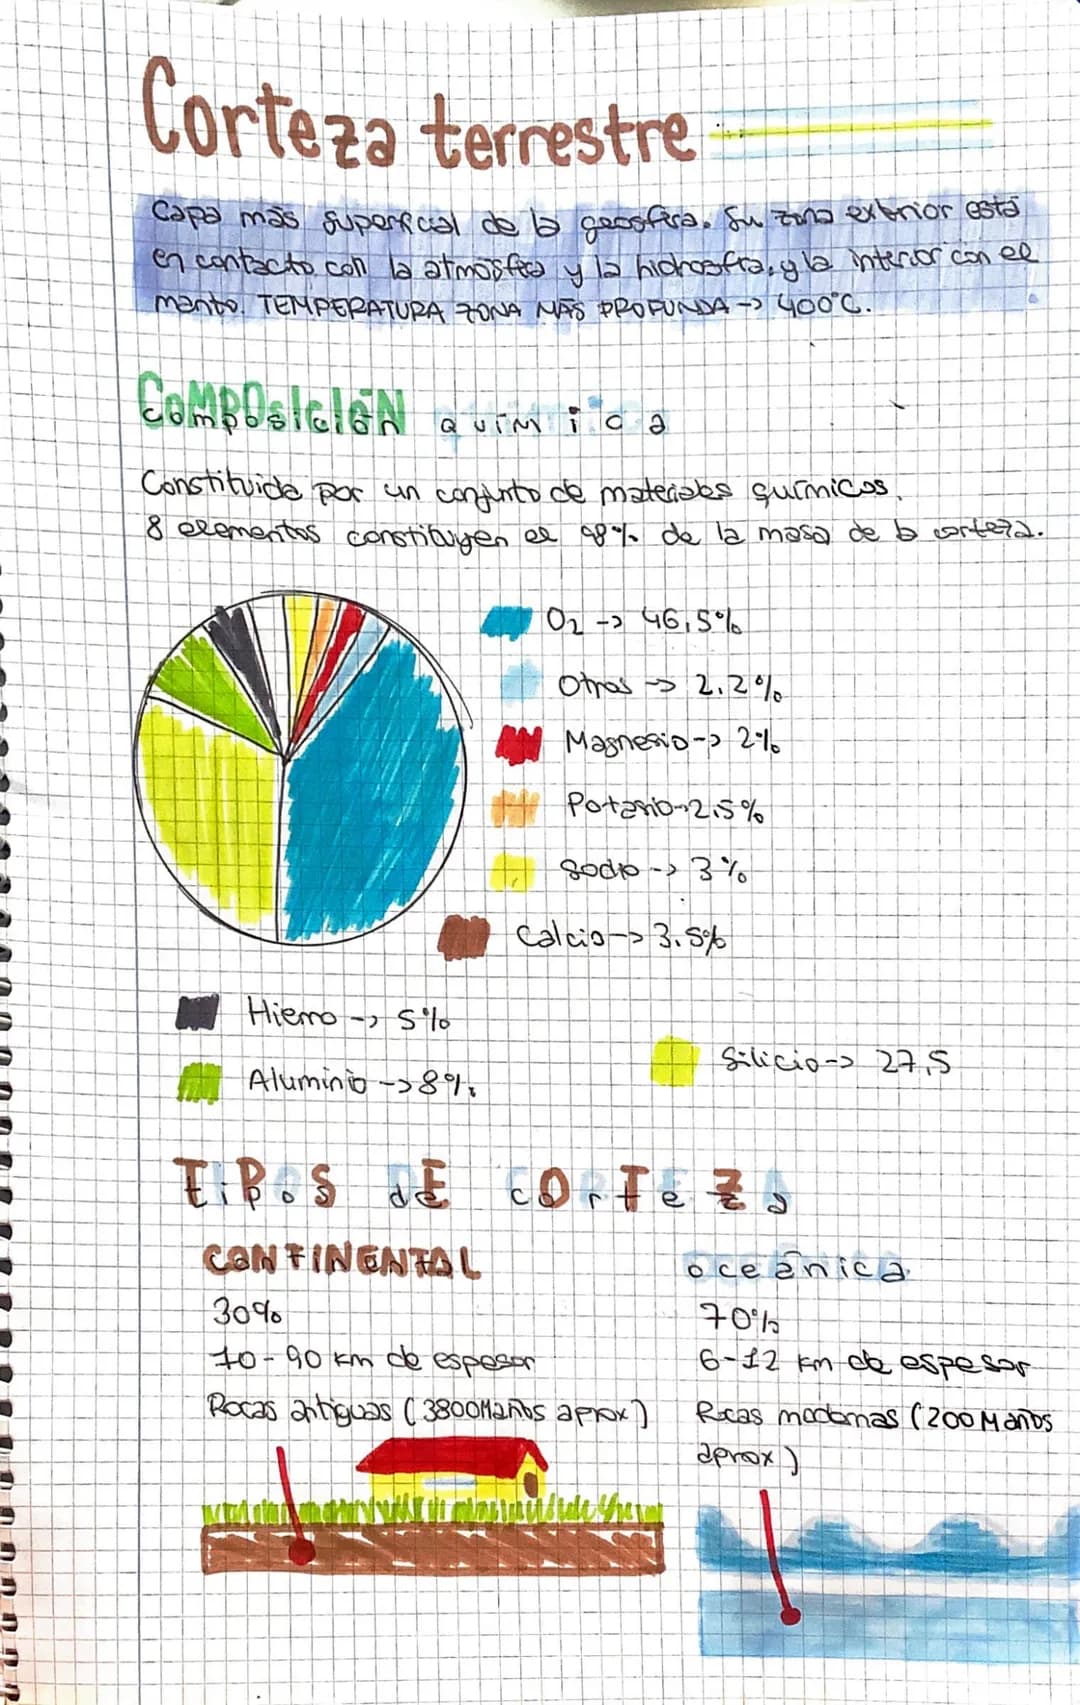 Corteza terrestre
Capa más superficial de la geosfera. Su zona exterior está
en contacto con la atmósfera y la hidrosfra, y la interior con el
manto. TEMPERATURA ZONA MÁS PROFUNDA -> 400°C.
COMPOSICIÓN QUÍMICA
Constituida por un conjunto de materiales químicos.
8 elementos constituyen el 98% de la masa de la corteza.
O2 -> 46,5%
Otros -> 2,2%
Magnesio -> 2%
Potasio -> 2,5%
Sodio -> 3%
Calcio -> 3,5%
Hierro -> 5%
Silicio -> 27,5
Aluminio -> 8%
TiPOS dE COrTeZa
CONTINENTAL
oceánica
30%
70%
10-90 km de espesor
6-12 km de espesor
Rocas antiguas (3800Maños aprox)
Rocas modernas (200Maños
aprox)